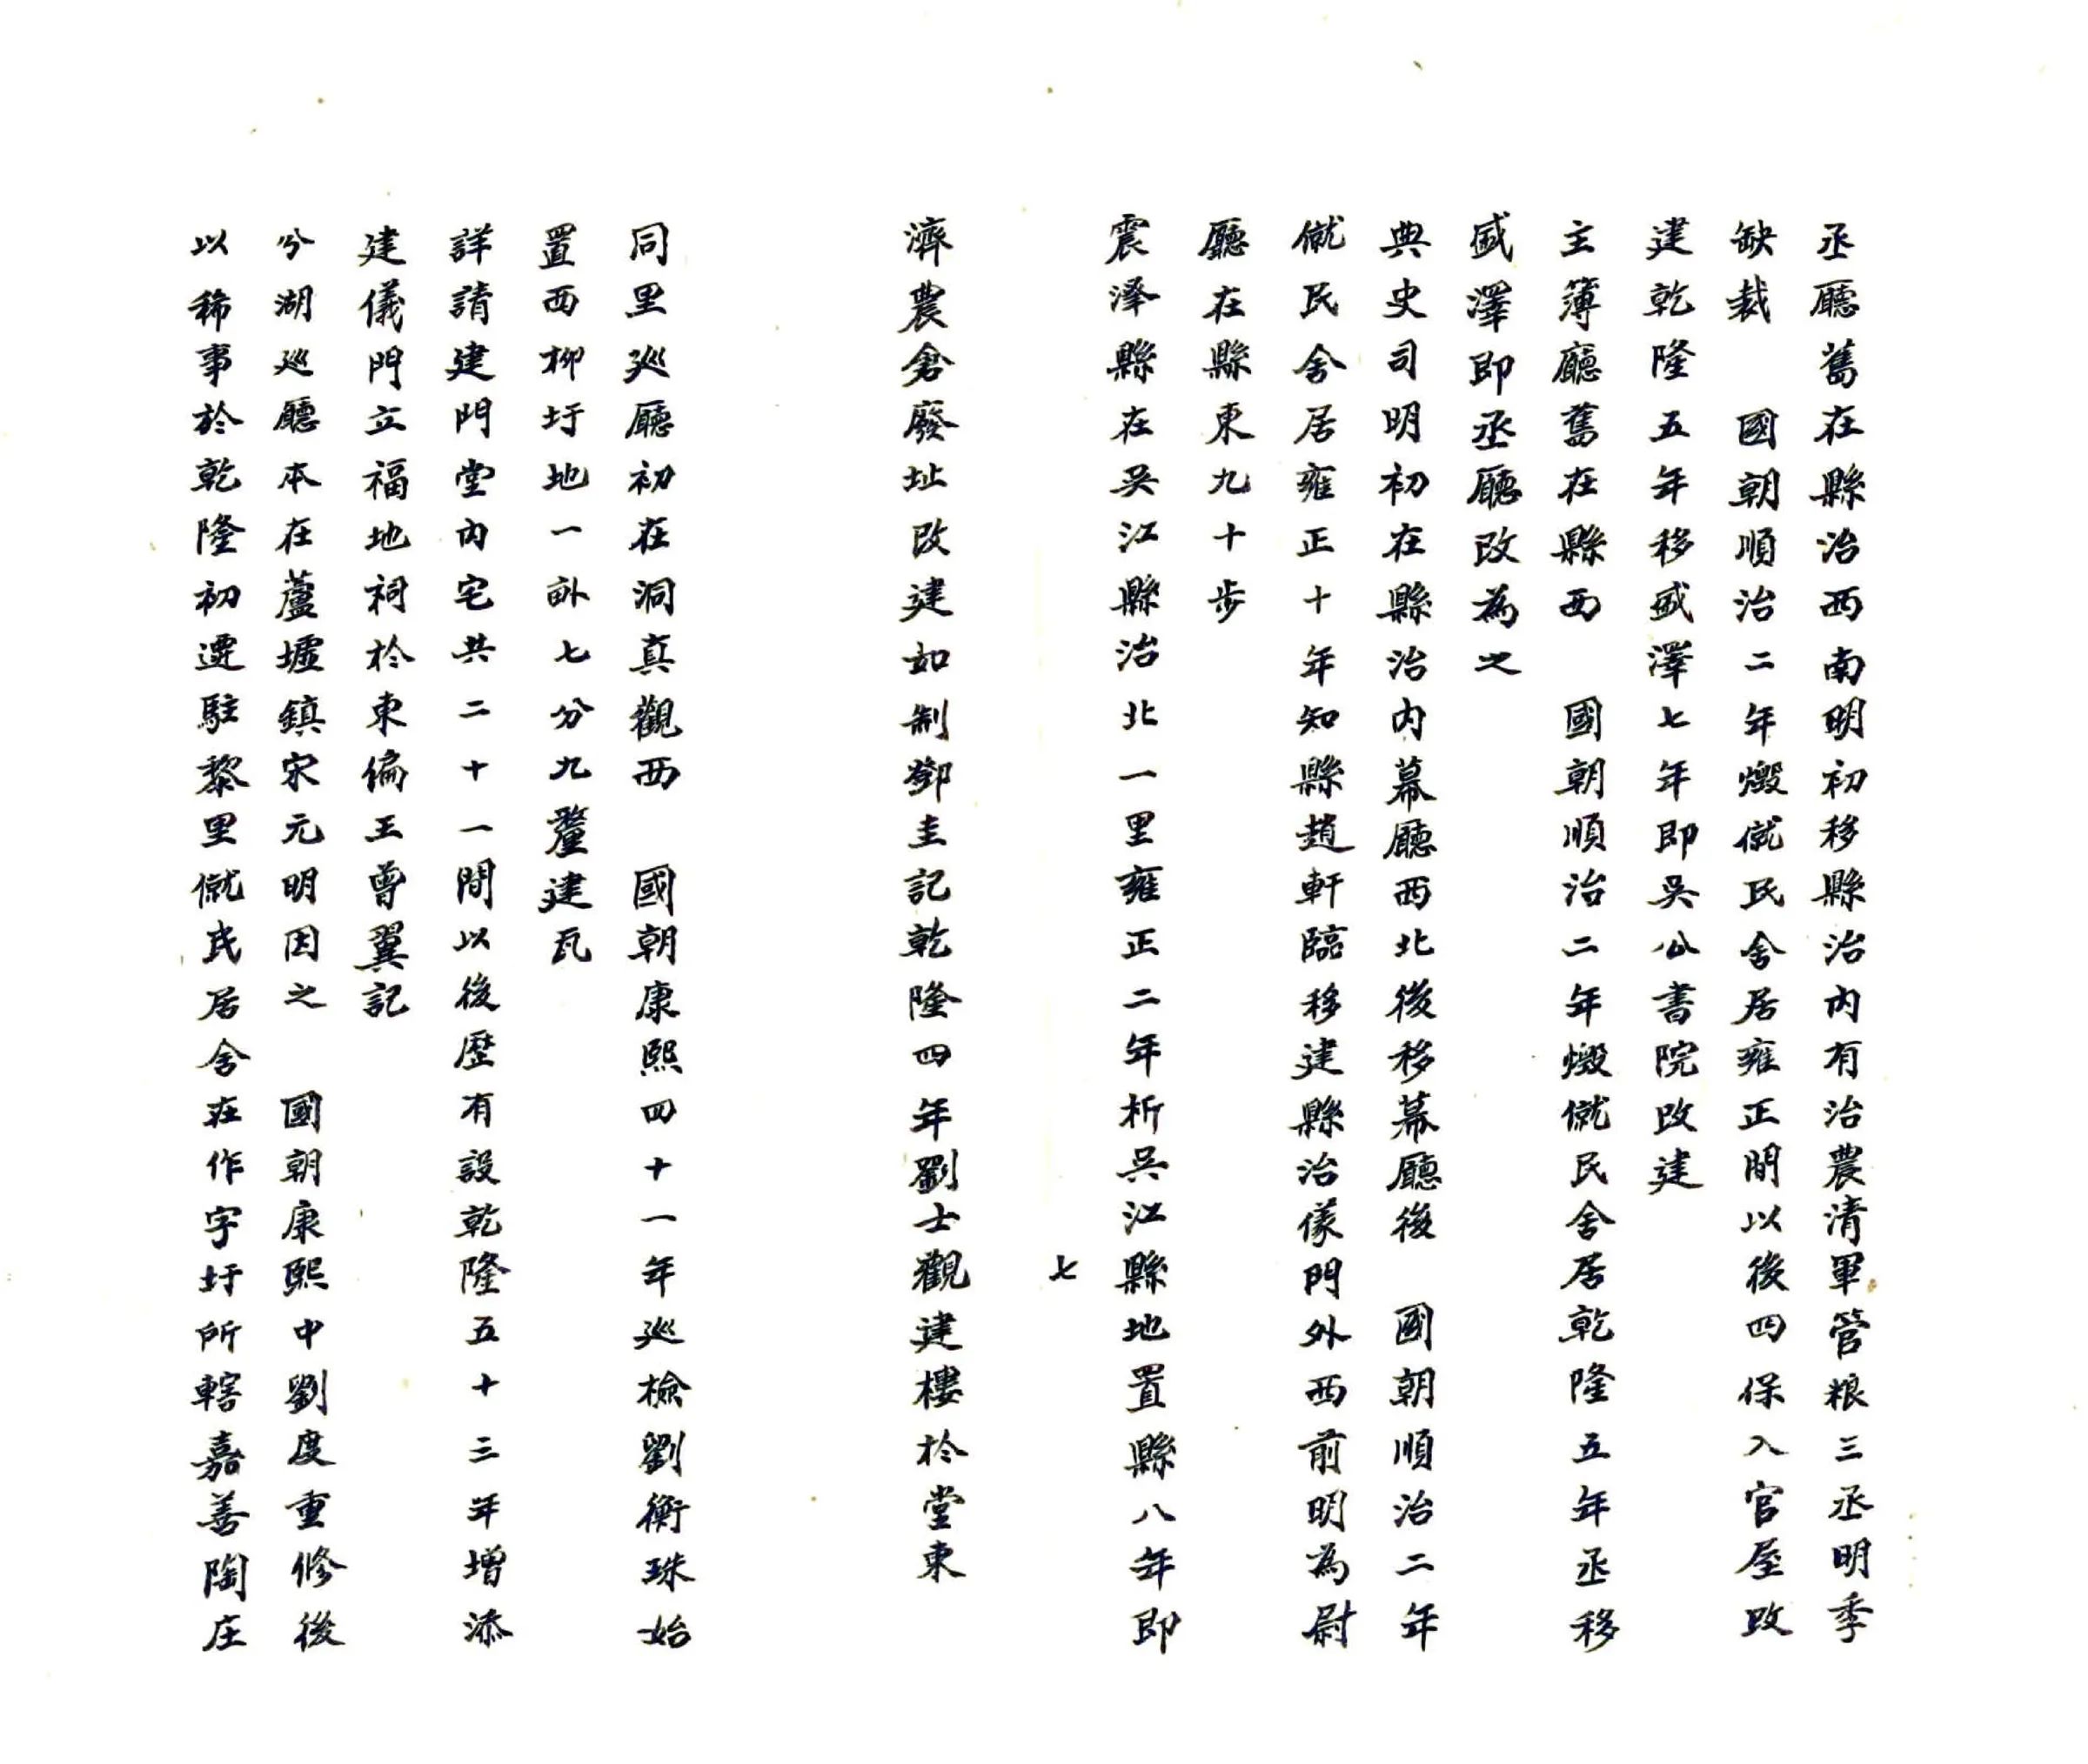 丞廳舊在縣治西南明初移縣治內有治農清軍管粮三丞明季
缺裁　國朝順治二年燬僦民舍居雍正間以後四保入官屋改
建乾隆五年移盛澤七年即吳公書院改建
主簿廳舊在縣西　國朝順治二年燬僦民舍居乾隆五年丞移
盛澤即丞廳改為之
典史司明初在縣治內幕廳西北後移幕廳後　國朝順治二年
僦民舍居雍正十年知縣趙軒臨移建縣治儀門外西前明為尉
廳在縣東九十步
震泽縣在吳江縣治北一里雍正二年析吳江縣地置縣八年即
七
濟農倉廢址改建如制鄧圭記乾隆四年劉士觀建樓於堂東
同里巡廳初在洞真觀西　國朝康熙四十一年巡檢劉衡珠始
置西柳圩地一畝七分九釐建瓦
詳請建門堂內宅共二十一間以後歷有設乾隆五十三年增添
建儀門立福地祠於東偏王曾翼記
分湖巡廳本在蘆墟鎮宋元明因之　國朝康熙中劉度重修後
以稀事於乾隆初遷駐黎里僦民居舍在作字圩所轄嘉善陶庄